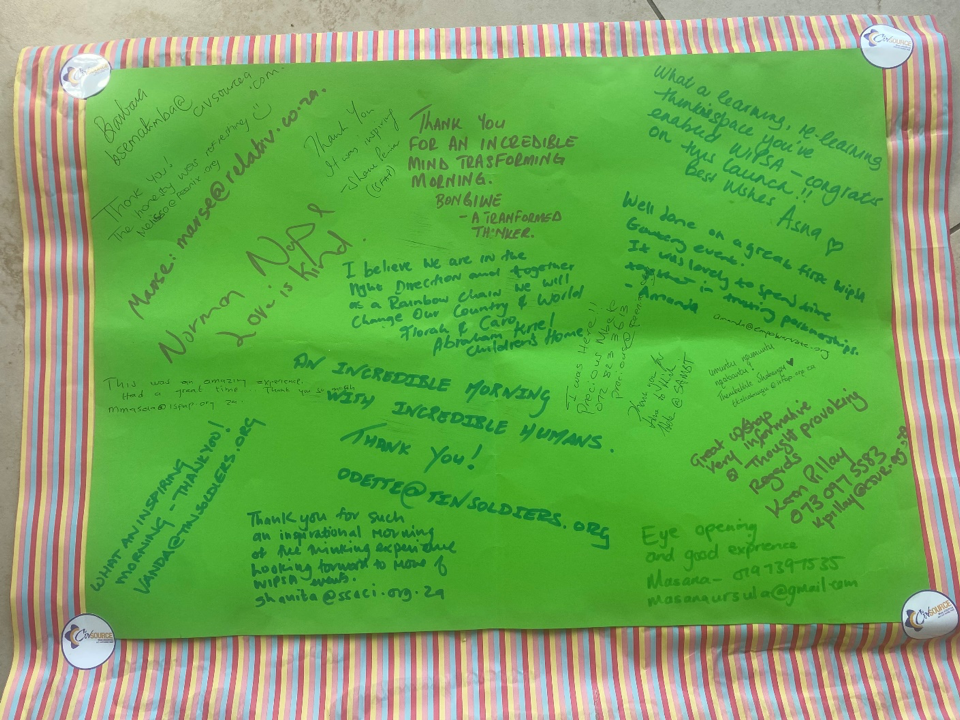 CivSOURCE
CivSOURCE
Barbara
bsemakimba@
civsourcea
.com.
Thank you!
The honesty was refreshing ☺
Manse: manse@relativ.co.za.
Norman Nape
Love is Kind.
Thank You
It was inspiring
THANK YOU
FOR AN INCREDIBLE
MIND TRASFORMING
MORNING.
BONGIWE
- A TRANFORMED
THINKER.
What a learning, re-learning
thinkingspace you've
enabled WIPSA - congrats
on this launch!!
Best Wishes Asna ♡
Well done on a great first WIPSA
Gauteng event.
It was lovely to spend time
together in trusting partnerships.
- Amanda
I believe we are in the
right Direction and together
as a Rainbow Chain we will
Change Our Country & World
Florah & Caro,
Abraham Kriel
Children's Home
I was Here!!
Precious
072 823 3613
Thank you for
this to
@ SANBT
umuntu ngumuntu
ngabantu!
♥
AN INCREDIBLE MORNING
WITH INCREDIBLE HUMANS.
THANK YOU!
ODETTE@TINSOLDIERS.ORG
This was an amazing experience.
Had a great time. Thank you so much
Great w/shop
Very informative
& Thought provoking
Regards
Koen Pillay
073 097 5583
WHAT AN INSPIRING
MORNING - THANKYOU!
VANDA@TINSOLDIERS.ORG
Thank you for such
an inspirational morning
of the thinking experience
Looking forward to more of
WIPSA events.
ghaniba@ssaci.org.za
Eye opening
and good exprience
Masana- 0797397535
masanaursula@gmail.com
CivSOURCE
CivSOURCE